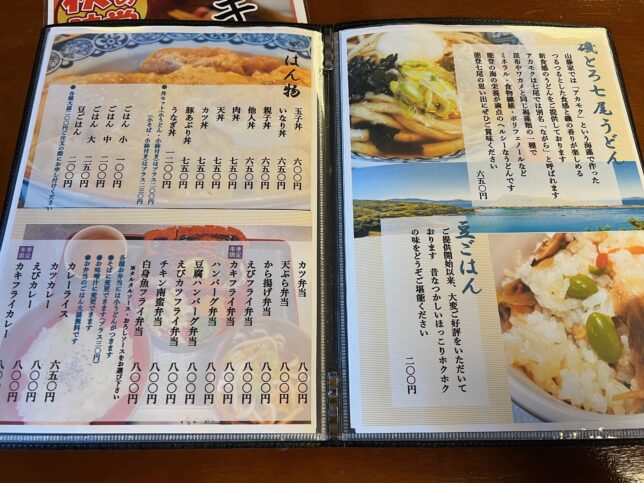 磯とろ七尾うどん
山藤家では「アカモク」という海藻で作った
つるつるとした食感と磯の香りが楽しめる
新食感のうどんをご提供しております
アカモクは七尾では別名「ながら」と呼ばれます
昆布やワカメと同じ褐藻類の一種で
ミネラル・食物繊維・ポリフェノールなど
能登の海の栄養が満点のヘルシーなうどんです
能登七尾の思い出にぜひご賞味ください
六五〇円
豆ごはん
ご提供開始以来、大変ご好評をいただいて
おります 昔なつかしいほっこりホクホク
の味をどうぞご堪能ください
二〇〇円
ごはん物
玉子丼 六〇〇円
いなり丼 六五〇円
親子丼 六五〇円
他人丼 六五〇円
肉丼 七五〇円
天丼 七五〇円
カツ丼 七五〇円
豚あぶり丼 七五〇円
うなぎ丼
ごはん 小 一〇〇円
ごはん 中
ごはん 大
豆ごはん 二〇〇円
カツ弁当 八〇〇円
天ぷら弁当 八〇〇円
から揚げ弁当 八〇〇円
えびフライ弁当 八〇〇円
冬季限定 カキフライ弁当 八〇〇円
ハンバーグ弁当 八〇〇円
豆腐ハンバーグ弁当 八〇〇円
えびカツフライ弁当 八〇〇円
チキン南蛮弁当 八〇〇円
白身魚フライ弁当 八〇〇円
※タルタルソース・おろしソースをお選び下さい
カレーライス 六五〇円
カツカレー 八〇〇円
えびカレー 八〇〇円
冬季限定 カキフライカレー 八〇〇円